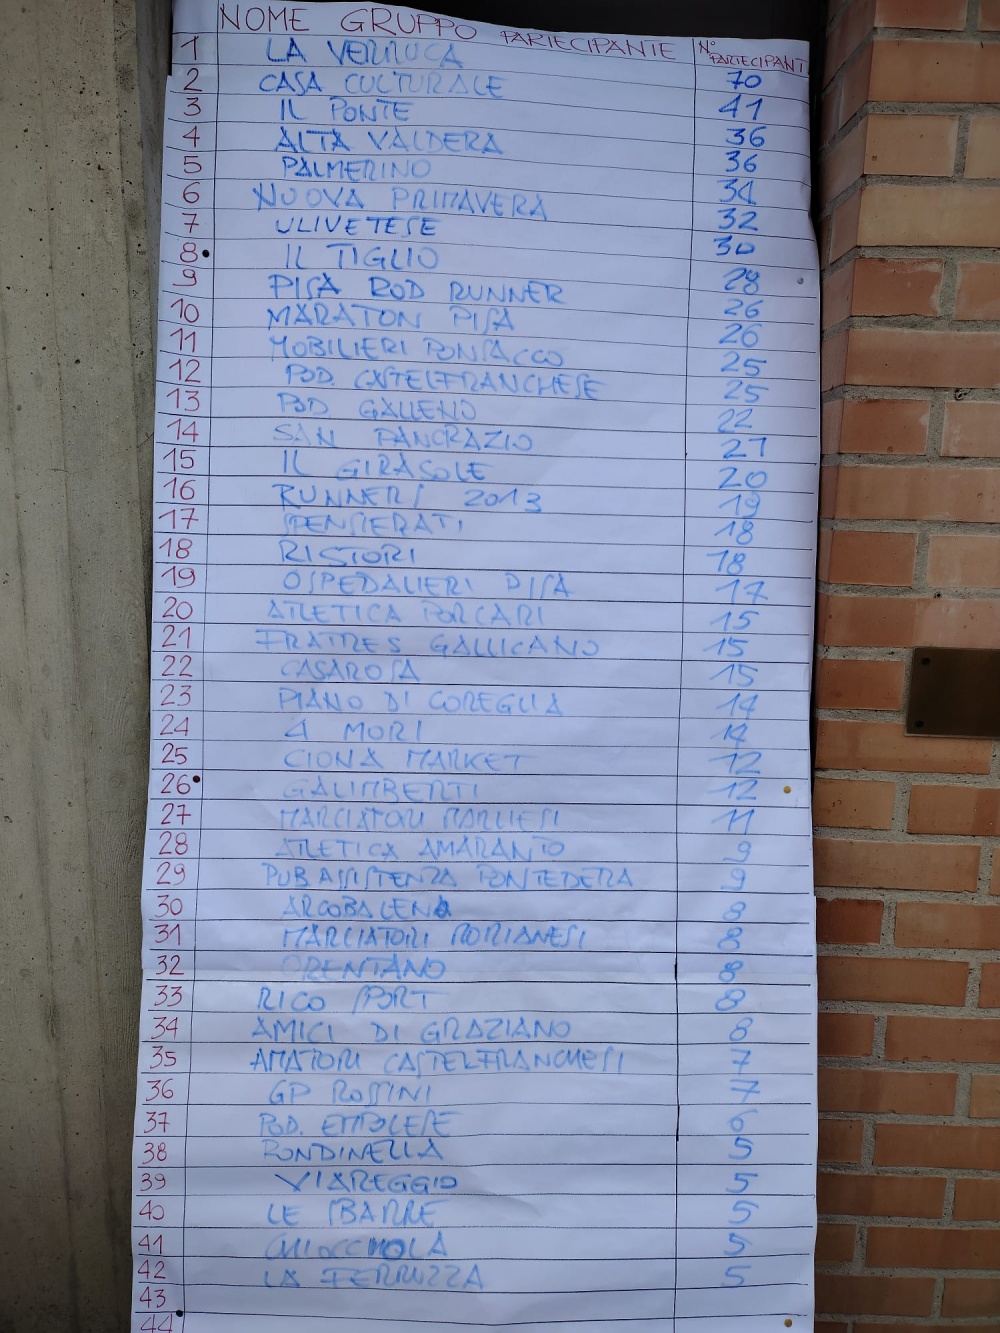 NOME GRUPPO PARTECIPANTE N° PARTECIPANTI
1 LA VERRUCA 70
2 CASA CULTURALE 41
3 IL PONTE 36
4 ALTA VALDERA 36
5 PALMERINO 34
6 NUOVA PRIMAVERA 32
7 ULIVETESE 30
8 IL TIGLIO 28
9 PISA ROD RUNNER 26
10 MARATON PISA 26
11 MOBILIERI PONSACCO 25
12 POD. CASTELFRANCHESE 25
13 POD GALLENO 22
14 SAN PANCRAZIO 21
15 IL GIRASOLE 20
16 RUNNERS 2013 19
17 SPENSIERATI 18
18 RISTORI 18
19 OSPEDALIERI PISA 17
20 ATLETICA PORCARI 15
21 FRATRES GALLICANO 15
22 CASAROSA 15
23 PIANO DI COREGLIA 14
24 4 MORI 14
25 CIONA MARKET 12
26 GALIMBERTI 12
27 MARCIATORI MARLIESI 11
28 ATLETICA AMARANTO 9
29 PUB ASSISTENZA PONTEDERA 9
30 ARCOBALENA 8
31 MARCIATORI MORIANESI 8
32 ORENTANO 8
33 RICO SPORT 8
34 AMICI DI GRAZIANO 8
35 AMATORI CASTELFRANCHESI 7
36 GP ROSSINI 7
37 POD. EMPOLESE 6
38 RONDINELLA 5
39 VIAREGGIO 5
40 LE SBARRE 5
41 CHIOCCIOLA 5
42 LA FERRUZZA 5
43
44